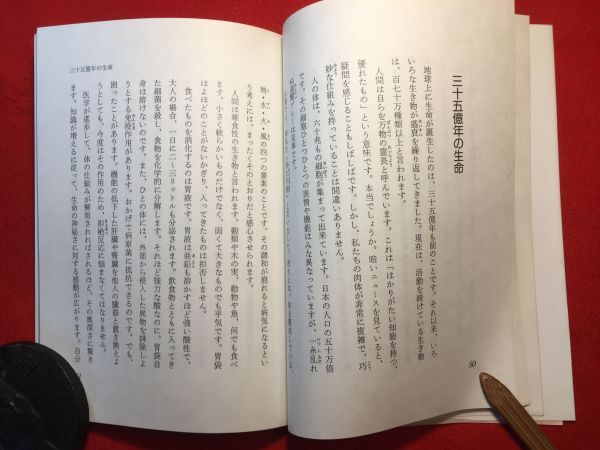 三十五億年の生命
地球上に生命が誕生したのは、三十五億年も前のことです。それ以来、いろ
いろな生き物が盛衰を繰り返してきました。現在は、活動を続けている生き物
は、百七十万種類以上と言われます。
人間は自らを万物の霊長と呼んでいます。これは「はかりがたい知能を持つ、
優れたもの」という意味です。本当でしょうか。暗いニュースを見ていると、
疑問を感じることもしばしばです。しかし、私たちの肉体が非常に複雑で、巧
妙な仕組みを持っていることは間違いありません。
人の体は、六十兆もの細胞が集まって出来ています。日本の人口の五十万倍
です。その細胞ひとつひとつの表情や機能はみな異なっていますが、一糸乱れ
50
三十五億年の生命
地・水・火・風の四つの要素のことです。その調和が崩れると病気になるとい
う考えには、まったくそのとおりだと感心させられます。
人間は雑食性の生き物と言われます。穀類や木の実、動物や魚、何でも食べ
ます。小さく軟らかいものだけでなく、固くて大きなものでも平気です。胃袋
はよほどのことがないかぎり、入ってきたものは拒否しません。
食べたものを消化するのは胃液です。胃液は亜鉛も溶かすほど強い酸性で、
大人の場合、一日に二〜三リットルも分泌されます。飲食物とともに入ってき
た細菌を殺し、食物を化学的に分解します。それほど強力な酸なのに、胃袋自
身は溶けないのです。また、ひとの体には、外部から侵入した異物を排除しよ
うとする免疫作用があります。おかげで病原菌に抵抗できるのです。でも、
困ったことがあります。機能の低下した肝臓や腎臓を他人の臓器と置き換えよ
うとしても、今度はその作用のため、拒絶反応に悩まなくてはなりません。
医学が進歩して、体の仕組みが解明されればされるほど、その奥深さに驚き
ます。知識が増えるに従って、生命の神秘さに対する感動が広がります。自分